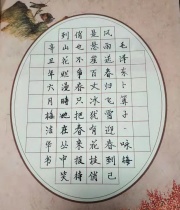 毛泽东卜算子·咏梅
风雨送春归飞雪迎春到已
是悬崖百丈冰犹有花枝俏
俏也不争春只把春来报待
到山花烂漫时她在丛中笑
辛丑年六月梅洁华书